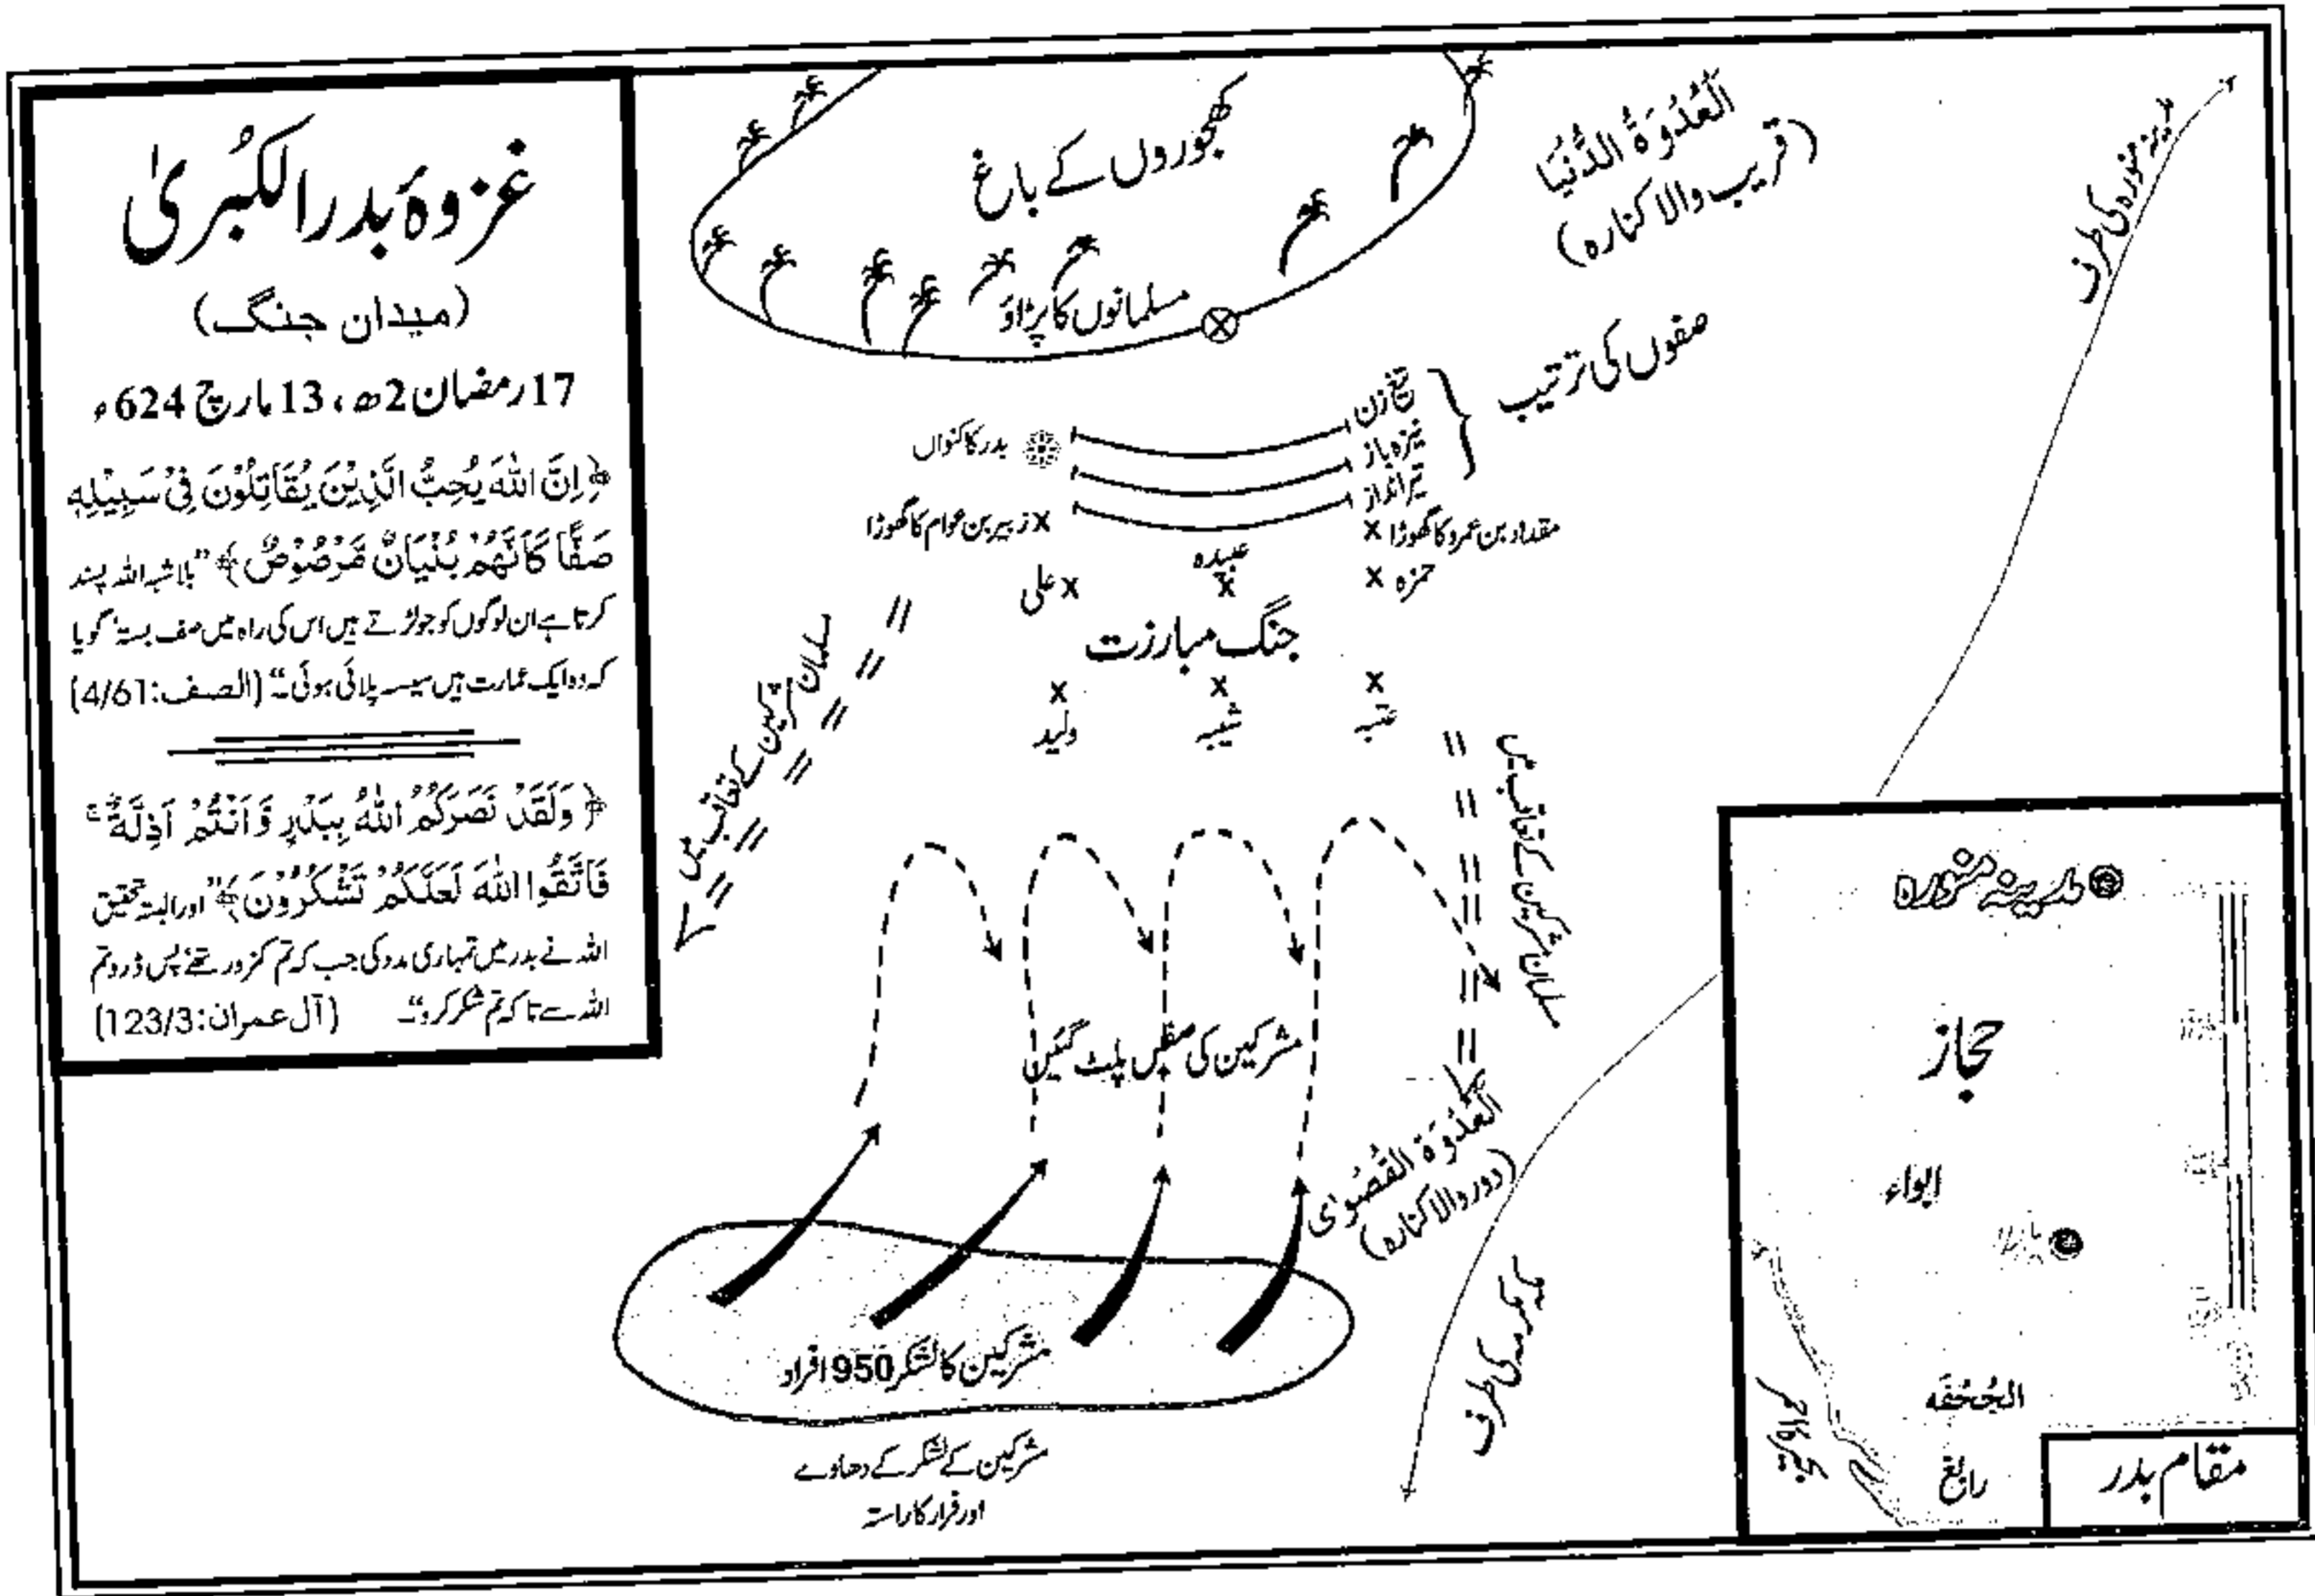 غزوۂ بدر الکبریٰ
(میدان جنگ)
17 رمضان 2ھ، 13 مارچ 624ء
﴿اِنَّ اللّٰهَ يُحِبُّ الَّذِيْنَ يُقَاتِلُوْنَ فِيْ سَبِيْلِهٖ
صَفًّا كَاَنَّهُمْ بُنْيَانٌ مَّرْصُوْصٌ﴾ ”بلاشبہ اللہ پسند
کرتا ہے ان لوگوں کو جو لڑتے ہیں اس کی راہ میں صف بستہ گویا
کہ وہ ایک عمارت ہیں سیسہ پلائی ہوئی۔“ (الصف: 4/61)
﴿وَلَقَدْ نَصَرَكُمُ اللّٰهُ بِبَدْرٍ وَّاَنْتُمْ اَذِلَّةٌ ۚ
فَاتَّقُوا اللّٰهَ لَعَلَّكُمْ تَشْكُرُوْنَ﴾ ”اور البتہ تحقیق
اللہ نے بدر میں تمہاری مدد کی جب کہ تم کمزور تھے، پس ڈرو تم
اللہ سے تاکہ تم شکر کرو۔“ (آل عمران: 123/3)
کھجوروں کے باغ
مسلمانوں کا پڑاؤ
اَلْعُدْوَةُ الدُّنْيَا
(قریب والا کنارہ)
مدینہ منورہ کی طرف
صفوں کی ترتیب
تیغ زن
نیزہ باز
تیرانداز
بدر کا کنواں
زبیر بن عوام کا گھوڑا
مقداد بن عمرو کا گھوڑا
علی
عبیدہ
حمزہ
جنگ مبارزت
ولید
شیبہ
عتبہ
مسلمان مشرکین کے تعاقب میں
مسلمان مشرکین کے تعاقب میں
مشرکین کی صفیں پلٹ گئیں
اَلْعُدْوَةُ الْقُصْوٰی
(دور والا کنارہ)
مکہ مکرمہ کی طرف
مشرکین کا لشکر 950 افراد
مشرکین کے لشکر کے دھاوے
اور فرار کا راستہ
مدینہ منورہ
حجاز
ابواء
الجحفہ
رابغ
بحیرہ احمر
مقام بدر